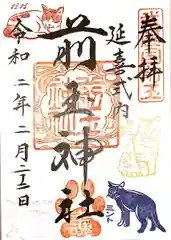 奉拝
延喜式内
前玉神社
令和二年二月二二日